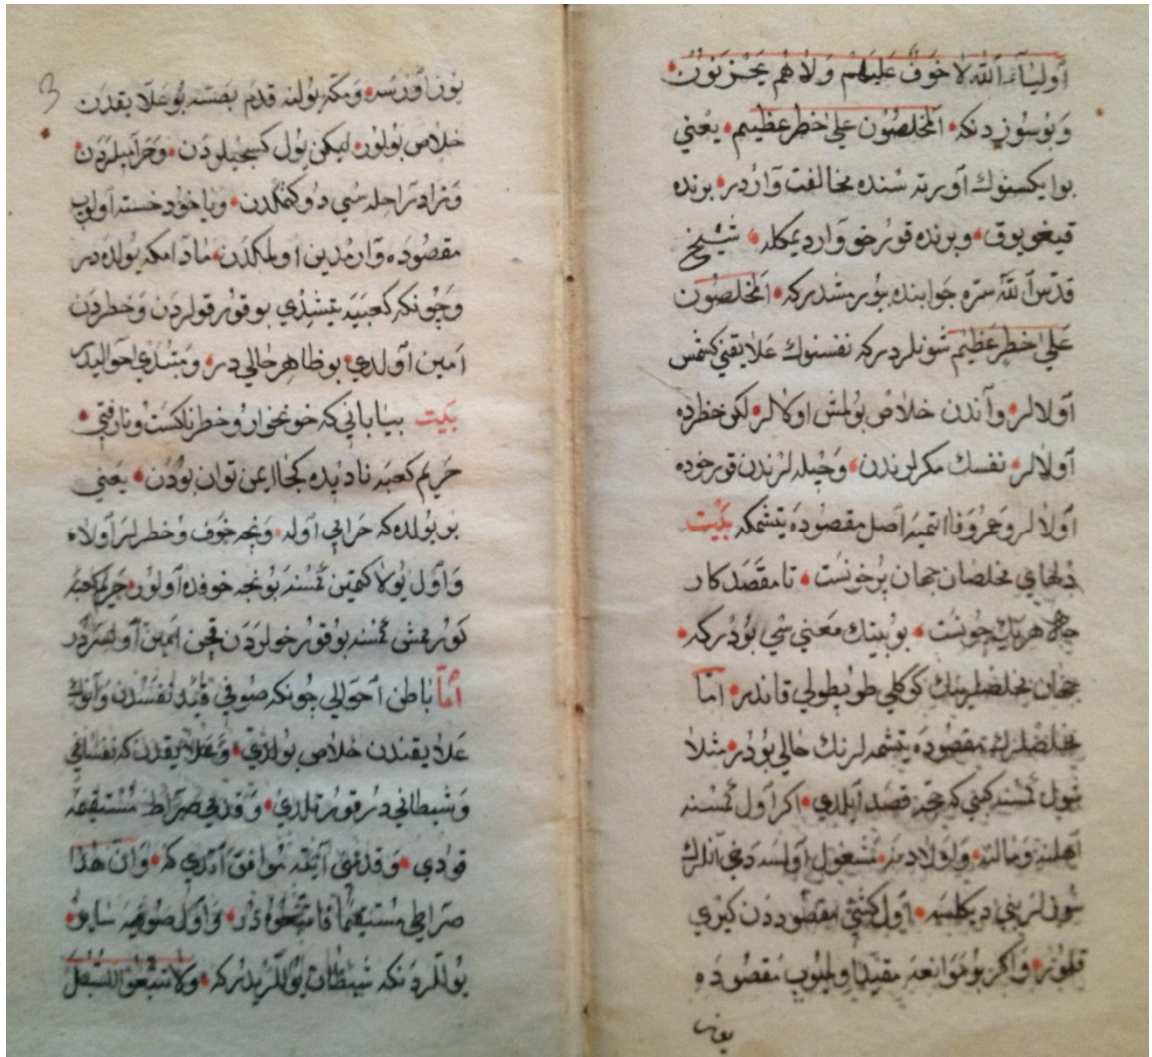 أوليآء الله لا خوف عليهم ولا هم يحزنون
وبوسوز دنكه المخلصون على خطر عظيم يعني
بوايكسنوك اورته سنده مخالفت واردر برنده
قيغو يوق وبرنده قورخو وار ديمكله شيخ
قدس الله سره جوابنده بيورمشدركه المخلصون
على خطر عظيم شونلردركه نفسنوك علايقني كسمش
اولالر وآندن خلاص بولمش اولالر لكن خطرده
اولالر نفسك مكرلرندن وحيله لرندن قورخوده
اولالر وعمر وفا ايتميه اصل مقصوده يتشمكه بيت
دلهاي مخلصان جهان پرخونست تا مقصد كار
هريك چونست بو بيتك معني سي بودركه
جهان مخلصلرينك كوكلي طوپطولي قاندر امّا
مخلصلرك مقصوده يتشمه لرنك حالي بودر مثلا
شول كمسنه كبي كه حجه قصد ايلدي اكر اول كمسنه
اهلنه ومالنه واولادينه مشغول اولسه دخي آنلرك
سوزلريني ديكلسه اول كشي مقصوددن كيرو
قلور واكر بو موانعه مقيد اولميوب مقصوده
يوز
3
يوز اورسه ومكه يولنه قدم بصسه بو علايقدن
خلاص بولور ليكن يول كسيجيلردن وحراميلردن
وزاد راحله سي دوكنمكدن ويا خود خسته اولوب
مقصوده وارمدين اولمكدن مادامكه يولده در
وچونكه كعبيه يتشدي بو قورقولردن وخطردن
امين اولدي بو ظاهر حالي در ومبتدي احواليدر
بيت بياباني كه خونخوار وخطرناكست ونارفتي
حريم كعبه ناديده كجا ايمن توان بودن يعني
بو يولده كه حرامي اوله ونجه خوف وخطرلر اولاء
واول يولا كتمين كمسنه بونجه خوفده اولور حريم كعبه
كورممش كمسنه بو قورخولردن قچن امين اولسردر
امّا باطن احوالي چونكه صوفي قيد نفسدن وآنوك
علايقندن خلاص بولدي وعلايقدن كه نفساني
وشيطاني در قورتلدي وقدمي صراط مستقيمه
قودي وقدمي آيته موافق آتدي كه وانّ هذا
صراطي مستقيما فاتبعوه در واول صوفيه سايق
يوللردنكه شيطان يوللريدركه ولا تتبعوا السبل